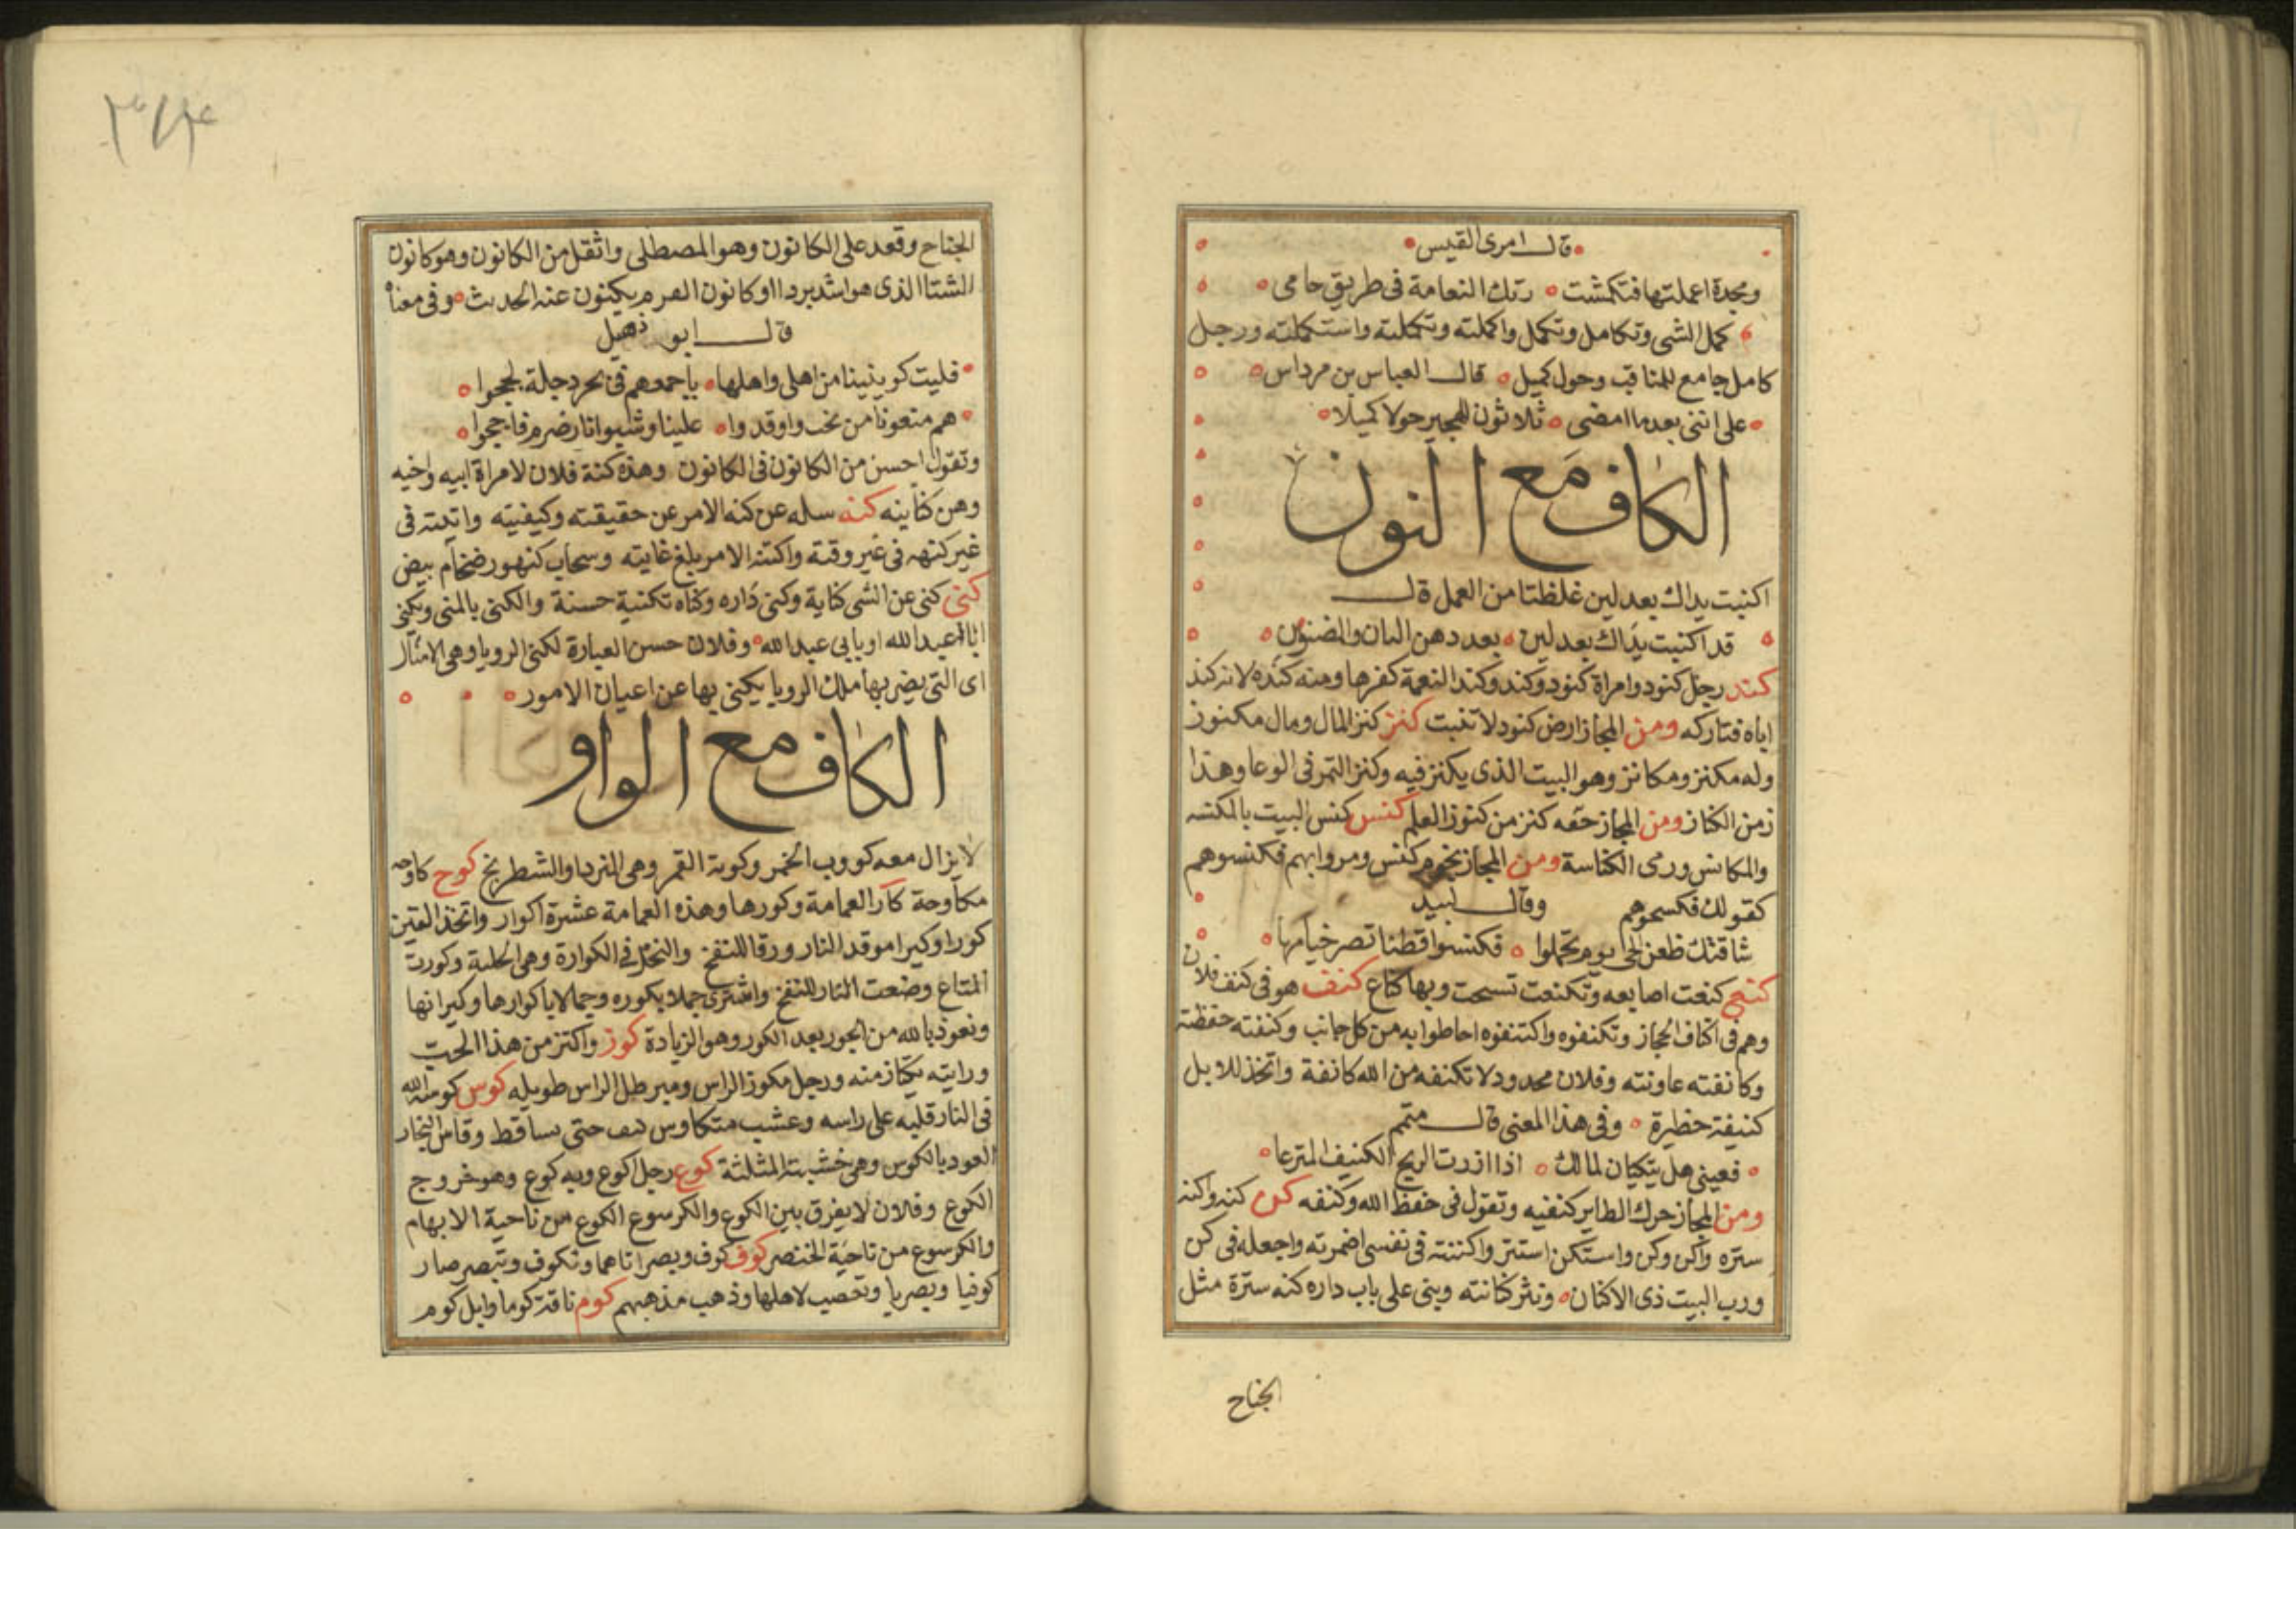 قال امرى القيس
ومجدة اعملتها فتكمشت رتك النعامة فى طريق حامى
كمل الشى وتكامل وتكمل واكملته وتكملته واستكملته ورجل
كامل جامع للمناقب وحول كميل قال العباس بن مرداس
على اننى بعد ما امضى ثلاثون للهجير حولا كميلا
الكاف مع النون
اكنبت يداك بعد لين غلظتا من العمل قال
قد اكنبت يداك بعد لين بعد دهن البان والمضنون
كند رجل كنود وامراة كنود وكند وكند النعمة كفرها ومنه كنده لانه كند
اباه فتاركه ومن المجاز ارض كنود لا تنبت كنز كنز المال ومال مكنوز
وله مكنز ومكانز وهو البيت الذى يكنز فيه وكنز التمر فى الوعا وهذا
زمن الكناز ومن المجاز حقه كنز من كنوز العلم كنس كنس البيت بالمكنسه
والمكانس ورمى الكناسة ومن المجاز نجوم كنس ومروا بهم فكنسوهم
كقولك فكسحوهم وقال لبيد
شاقتك ظعن الحى يوم تحملوا فكنسوا قطنا تصر خيامها
كنع كنعت اصابعه وتكنعت تسبحت وبها كناع كنف هو فى كنف فلان
وهم فى اكناف الحجاز وتكنفوه واكتنفوه احاطوا به من كل جانب وكنفته حفظته
وكانفته عاونته وفلان محدود لا تكنفه من الله كانفة واتخذ للابل
كنيفة حظيرة وفى هذا المعنى قال متمم
فعينى هل يتكيان لمالك اذا ازرت الريح الكنيف المترعا
ومن المجاز حرك الطاير كنفيه وتقول فى حفظ الله وكنفه كن كنه واكنه
ستره واكن وكن واستكن استتر واكننته فى نفسى اضمرته واجعله فى كن
ورب البيت ذى الاكنان ونثر كنانته وبنى على باب داره كنه سترة مثل
الجناح
الجناح وقعد على الكانون وهو المصطلى واثقل من الكانون وهو كانون
الشتا الذى هو اشد بردا او كانون الهرم يكنون عنه الحديث وفى معناه
قال ابو ذهبل
فليت كوينينا من اهلى واهلها باجمعهم فى بحر دجلة لججوا
هم منعونا من نحب واوقدوا علينا وشبوا نار ضرم فاججوا
وتقول احسن من الكانون فى الكانون وهذه كنة فلان لامراة ابيه واخيه
وهن كناينه كنه سله عن كنه الامر عن حقيقته وكيفيته واتيته فى
غير كنهه فى غير وقته واكتنه الامر بلغ غايته وسحاب كنهور ضخام بيض
كنى كنى عن الشى كناية وكنى داره وكناه تكنية حسنة والكنى بالمنى ويكنى
ابا عبد الله او بابى عبد الله وفلان حسن العبارة لكنى الرويا وهى الامثال
اى التى يضربها ملك الرويا يكنى بها عن اعيان الامور
الكاف مع الواو
لا يزال معه كووب الخمر وكوبة القمر وهى النرد او الشطرنج كوح كاوحه
مكاوحة كار العمامة وكورها وهذه العمامة عشرة اكوار واتخذ القين
كورا وكيرا موقد النار ورقا للنفخ والنحل فى الكوارة وهى الخلية وكورت
المتاع وضعت النار للنفخ واشترى جملا بكوره وجمالا باكوارها وكيرانها
ونعوذ بالله من الحور بعد الكور وهو الزيادة كوز واكتز من هذا الحب
ورايته يكتاز منه ورجل مكوز الراس ومبرطل الراس طويله كوس كوسه الله
فى النار قلبه على راسه وعشب متكاوس كثف حتى ساقط وقاس النجار
العود بالكوس وهى خشبته المثلثة كوع رجل اكوع وبه كوع وهو خروج
الكوع وفلان لا يفرق بين الكوع والكرسوع الكوع من ناحية الابهام
والكرسوع من ناحية الخنصر كوف كوف وبصر اتاهما وتكوف وتبصر صار
كوفيا وبصريا وتعصب لاهلها وذهب مذهبهم كوم ناقة كوما وابل كوم